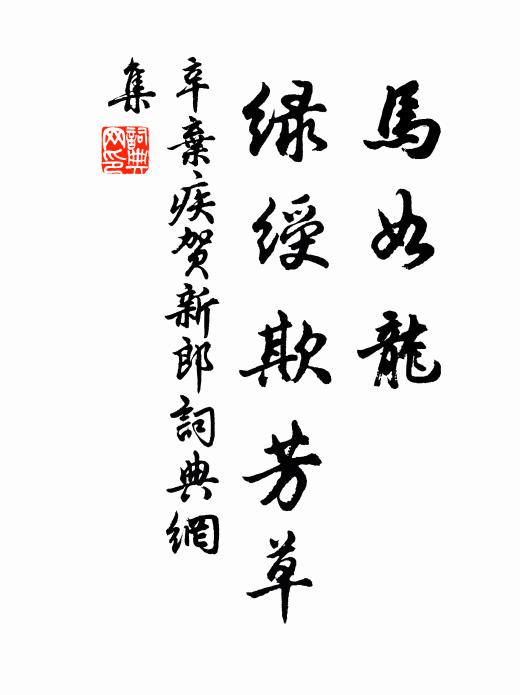 馬如龍
緑綬欺芳草
辛棄疾賀新郎詞典網
集
詞典網印